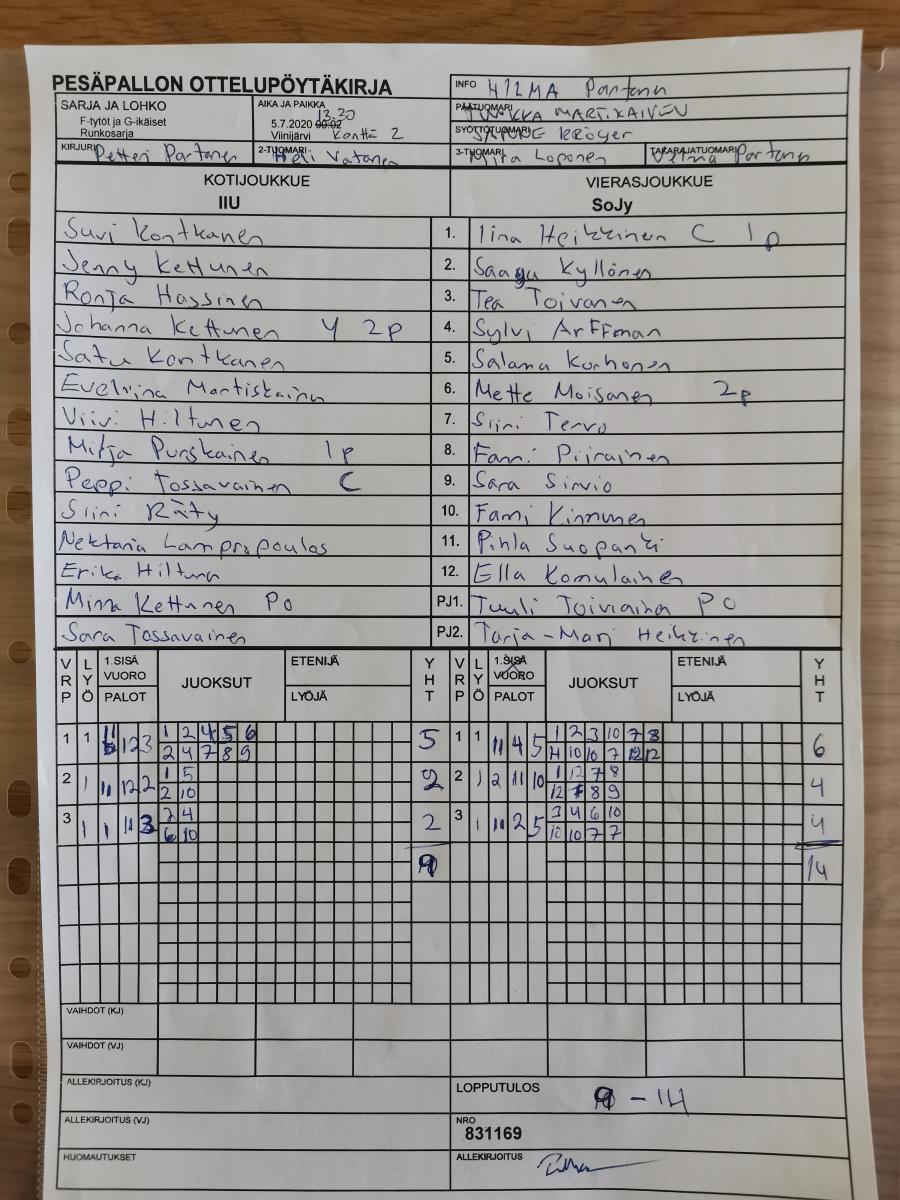 PESÄPALLON OTTELUPÖYTÄKIRJA
INFO HILMA Partanen
SARJA JA LOHKO
F-tytöt ja G-ikäiset
Runkosarja
AIKA JA PAIKKA
13.30
5.7.2020 00:02
Viinijärvi Kenttä 2
PÄÄTUOMARI TUUKKA MARTIKAINEN
SYÖTTÖTUOMARI SANNE KRÖGER
KIRJURI Petteri Partanen
2-TUOMARI Heli Vatanen
3-TUOMARI Mira Loponen
TAKARAJATUOMARI Partanen
KOTIJOUKKUE VIERASJOUKKUE
IIU SoJy
Suvi Kontkanen 1. Iina Heikkinen C 1p
Jenny Kettunen 2. Saaga Kyllönen
Ronja Hassinen 3. Tea Toivanen
Johanna Kettunen Y 2p 4. Sylvi Arffman
Satu Kontkanen 5. Salama Korhonen
Eveliina Martiskainen 6. Mette Moisanen 2p
Viivi Hiltunen 7. Siiri Tervo
Milja Purskainen 1p 8. Fanni Piirainen
Peppi Tossavainen C 9. Sara Sirviö
Siiri Räty 10. Fanni Kinnunen
Nektaria Lampropoulos 11. Pihla Suopanki
Erika Hiltunen 12. Ella Komulainen
Minna Kettunen PO PJ1. Tuuli Toiviainen PO
Sara Tossavainen PJ2. Tarja-Marj Heikkinen
VRP LYÖ 1.SISÄ VUORO PALOT JUOKSUT ETENIJÄ LYÖJÄ YHT VRP LYÖ 1.SISÄ VUORO PALOT JUOKSUT ETENIJÄ LYÖJÄ YHT
1 1 11 12 3 1 2 4 5 6 5 1 1 11 4 5 1 2 3 10 7 8 6
2 4 7 8 9 4 10 10 7 12 12
2 1 11 12 2 1 5 2 2 1 2 11 10 1 12 7 8 4
2 10 12 7 8 9
3 1 1 11 3 2 4 2 3 1 11 2 5 3 4 6 10 4
6 10 10 10 7 7
9 14
VAIHDOT (KJ)
VAIHDOT (VJ)
ALLEKIRJOITUS (KJ)
LOPPUTULOS 9 - 14
ALLEKIRJOITUS (VJ)
NRO
831169
HUOMAUTUKSET
ALLEKIRJOITUS